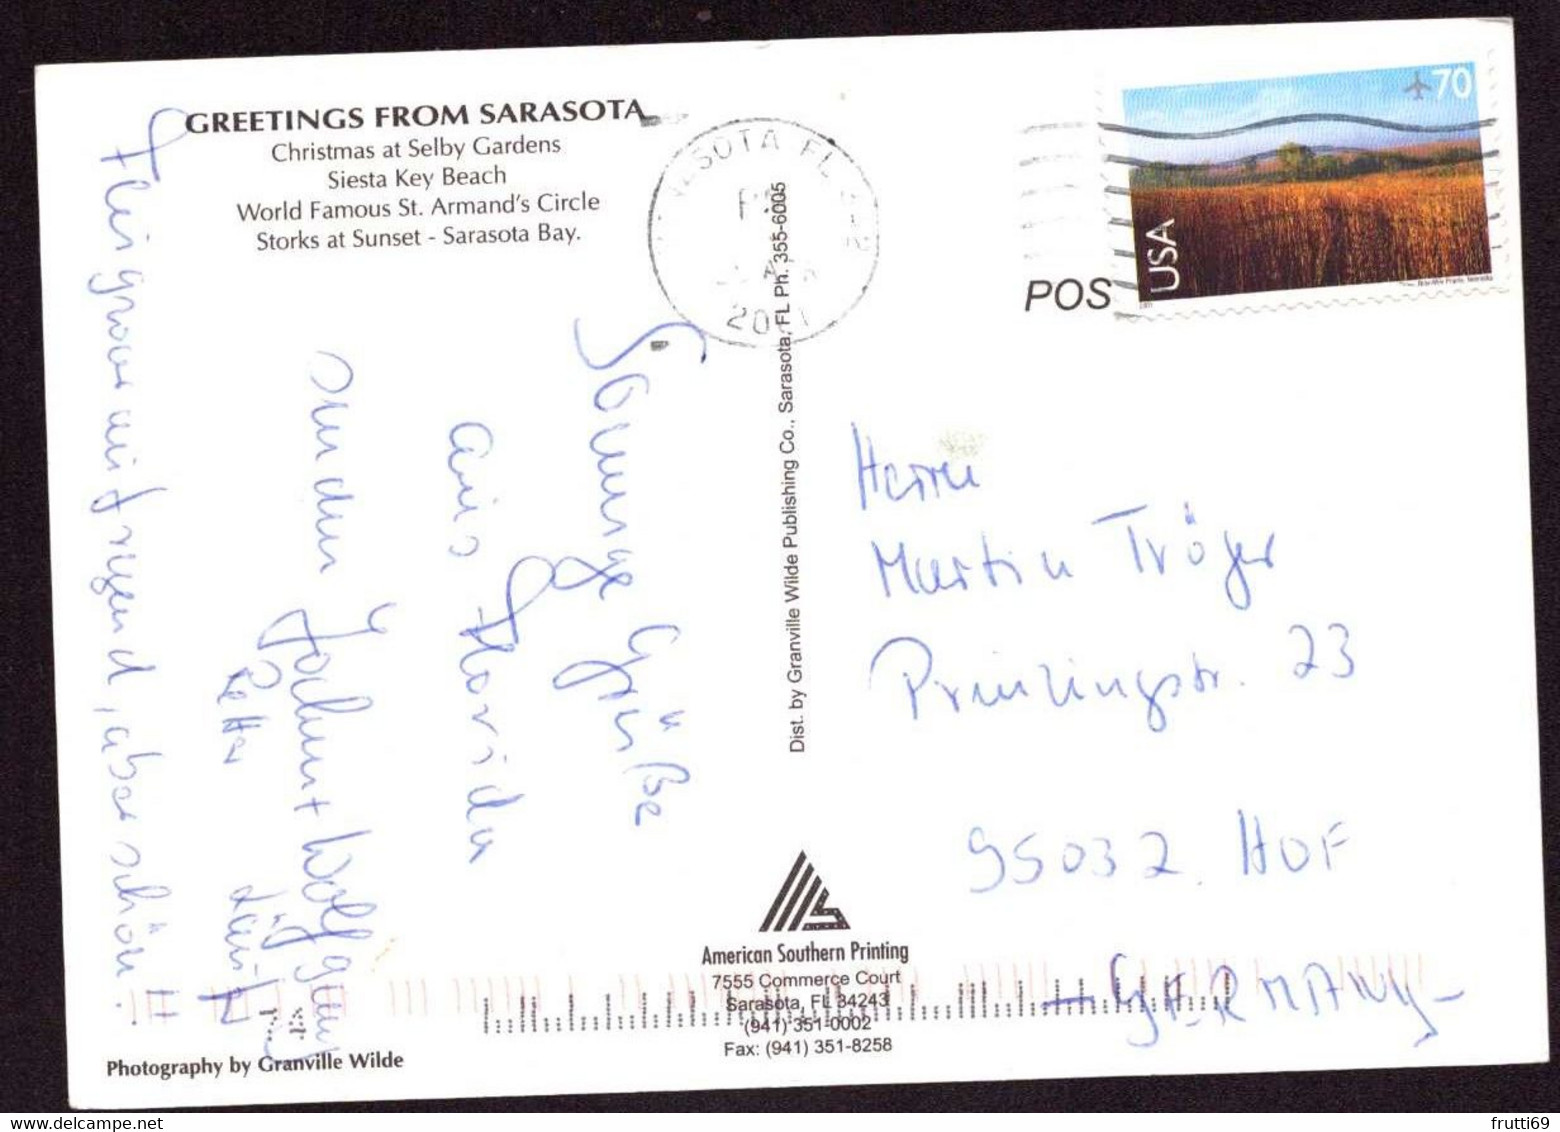 GREETINGS FROM SARASOTA
Christmas at Selby Gardens
Siesta Key Beach
World Famous St. Armand's Circle
Storks at Sunset - Sarasota Bay.
SOTA FL
USA
70
POS
Sonnige Grüße
aus Florida
senden
Jochen + Wolfgang
Flug war anstrengend, aber schön!
Herrn
Martin Tröger
Prinzingstr. 23
95032 HOF
- GERMANY -
Dist. by Granville Wilde Publishing Co., Sarasota, FL Ph. 355-6005
American Southern Printing
7555 Commerce Court
Sarasota, FL 34243
(941) 351-0002
Fax: (941) 351-8258
Photography by Granville Wilde
frutti69